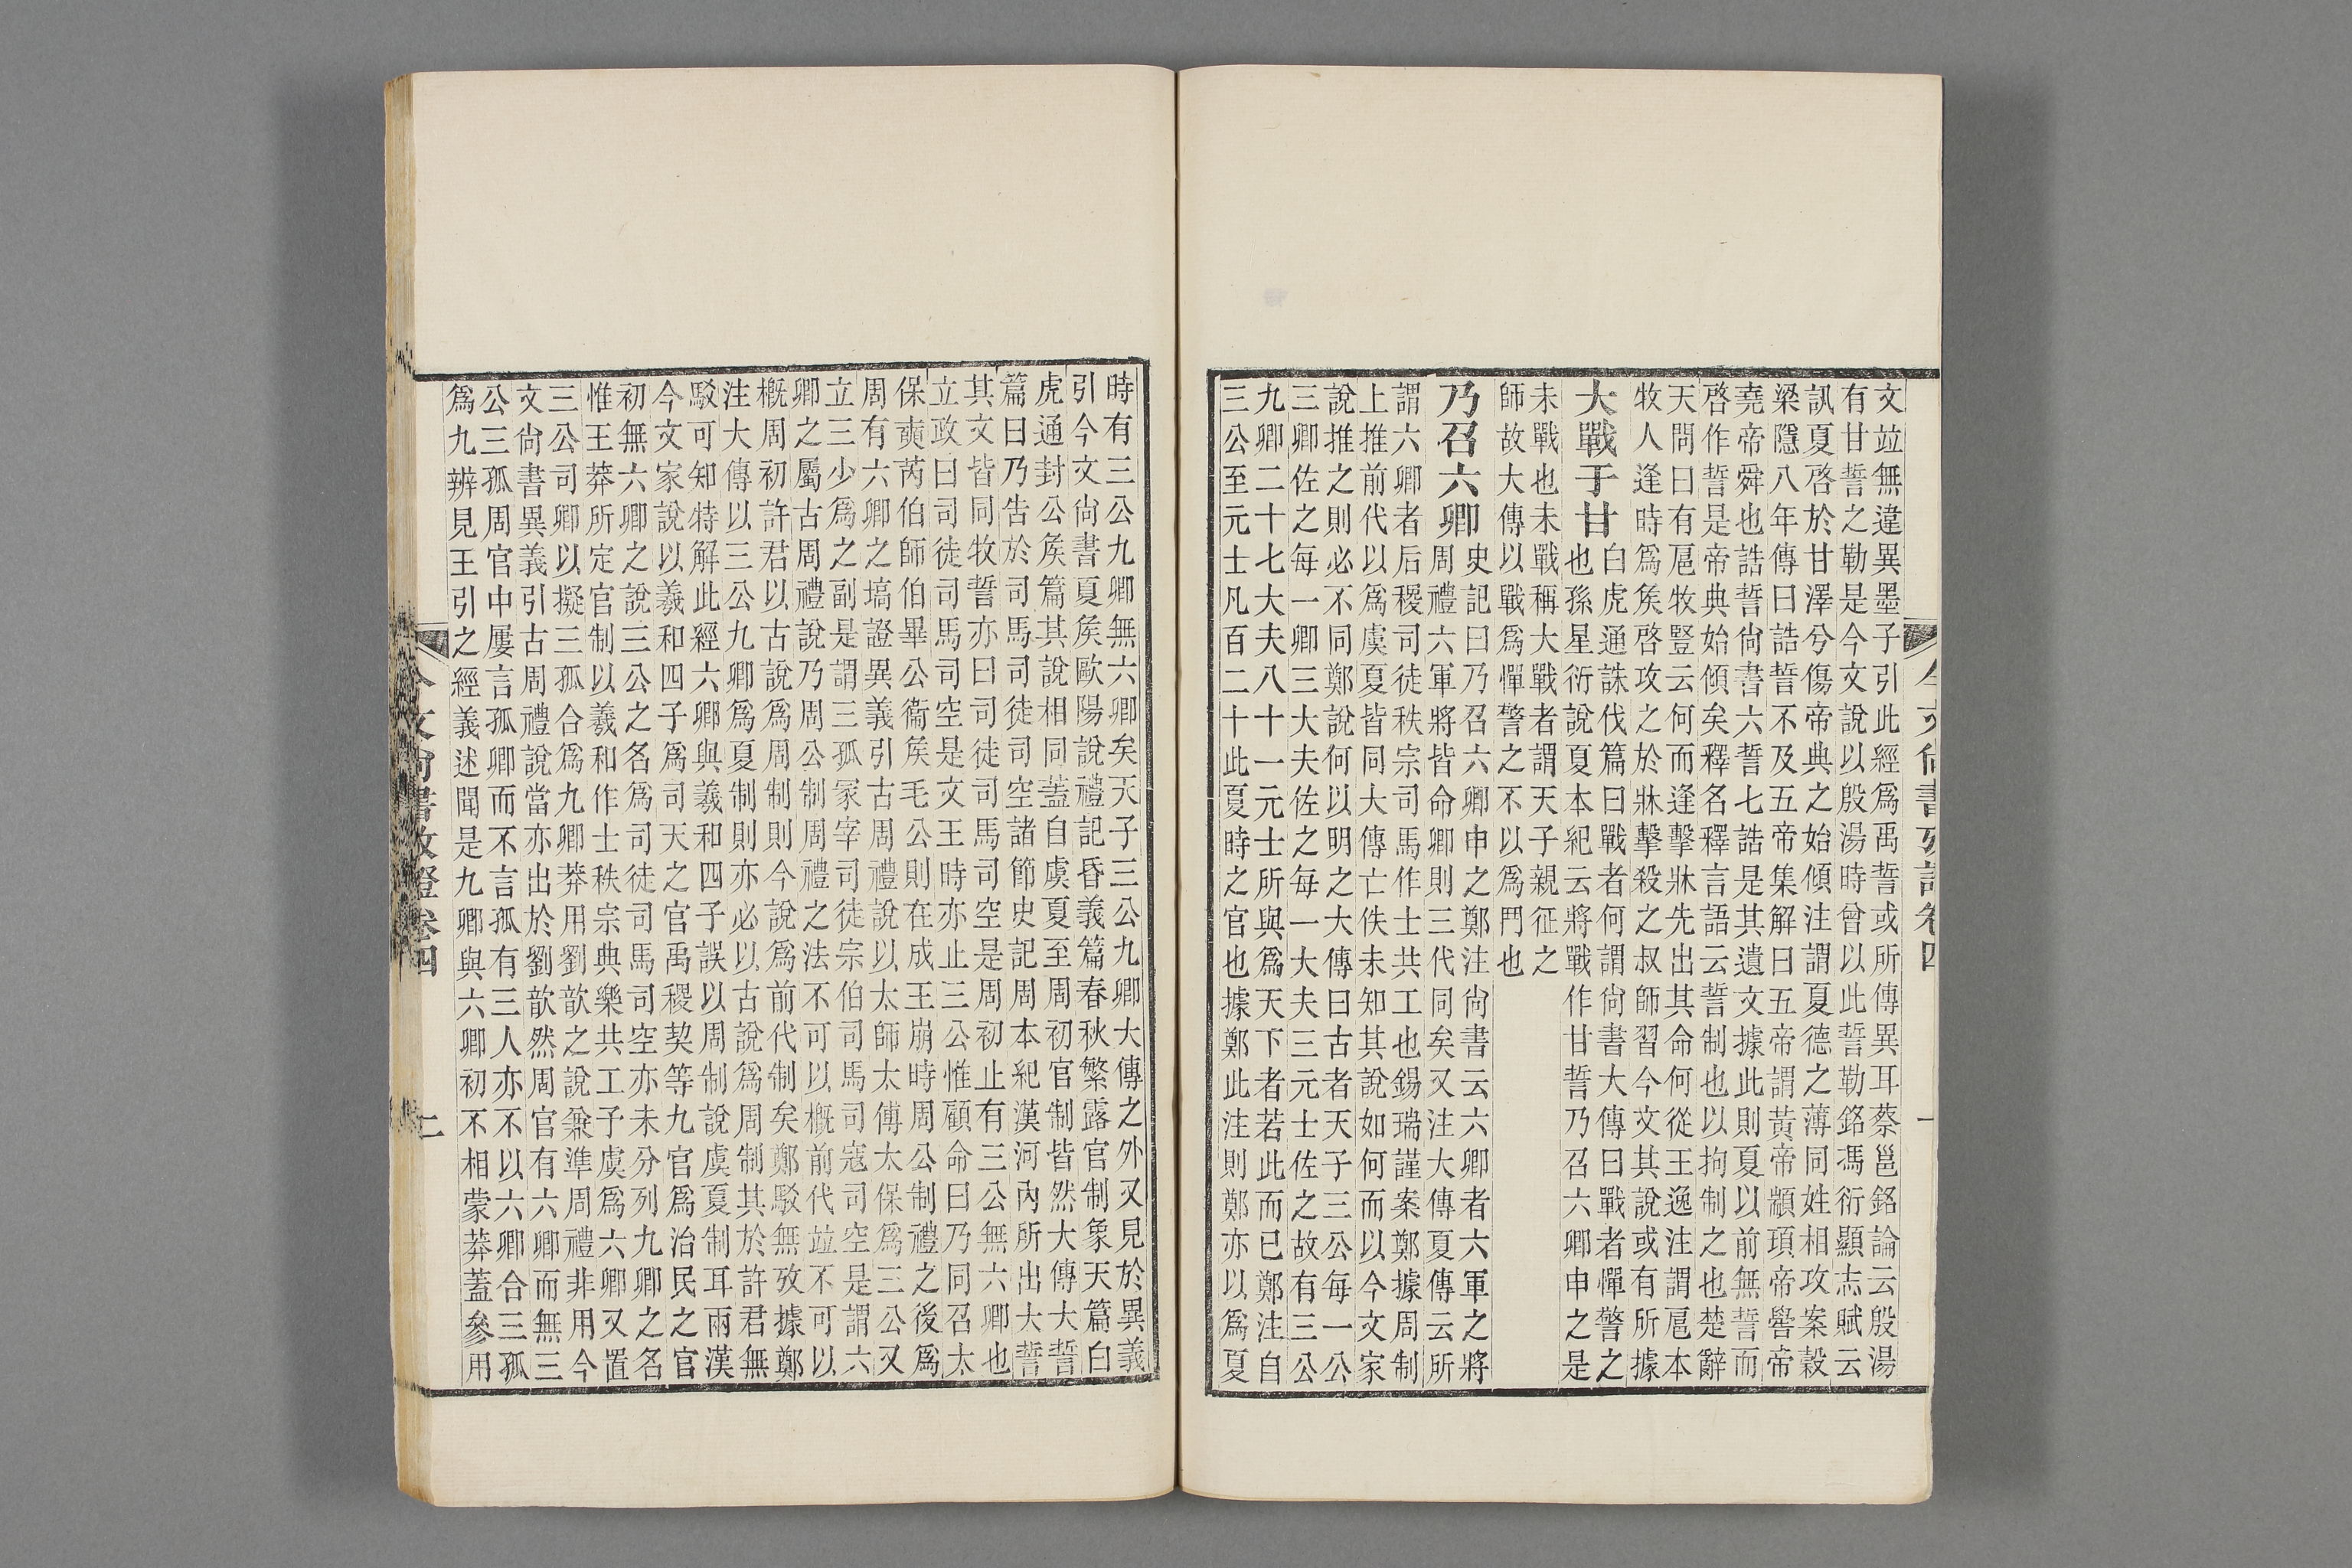 今文尙書攷證卷四 一
文竝無違異墨子引此經爲禹誓或所傳異耳蔡邕銘論云殷湯
有甘誓之勒是今文說以殷湯時曾以此誓勒銘馮衍顯志賦云
訊夏啓於甘澤兮傷帝典之始傾注謂夏德之薄同姓相攻案穀
梁隱八年傳曰誥誓不及五帝集解曰五帝謂黃帝顓頊帝嚳帝
堯帝舜也誥誓尙書六誓七誥是其遺文據此則夏以前無誓而
啓作誓是帝典始傾矣釋名釋言語云誓制也以拘制之也楚辭
天問曰有扈牧豎云何而逢擊牀先出其命何從王逸注謂扈本
牧人逢時爲矦啓攻之於牀擊殺之叔師習今文其說或有所據
大戰于甘
白虎通誅伐篇曰戰者何謂尙書大傳曰戰者憚警之
也孫星衍說夏本紀云將戰作甘誓乃召六卿申之是
未戰也未戰稱大戰者謂天子親征之
師故大傳以戰爲憚警之不以爲鬥也
乃召六卿
史記曰乃召六卿申之鄭注尙書云六卿者六軍之將
周禮六軍將皆命卿則三代同矣又注大傳夏傳云所
謂六卿者后稷司徒秩宗司馬作士共工也錫瑞謹案鄭據周制
上推前代以爲虞夏皆同大傳亡佚未知其說如何而以今文家
說推之則必不同鄭說何以明之大傳曰古者天子三公每一公
三卿佐之每一卿三大夫佐之每一大夫三元士佐之故有三公
九卿二十七大夫八十一元士所與爲天下者若此而已鄭注自
三公至元士凡百二十此夏時之官也據鄭此注則鄭亦以爲夏
時有三公九卿無六卿矣天子三公九卿大傳之外又見於異義
引今文尙書夏矦歐陽說禮記昏義篇春秋繁露官制象天篇白
虎通封公矦篇其說相同蓋自虞夏至周初官制皆然大傳大誓
篇曰乃告於司馬司徒司空諸節史記周本紀漢河內所出大誓
其文皆同牧誓亦曰司徒司馬司空是周初止有三公無六卿也
立政曰司徒司馬司空是文王時亦止三公惟顧命曰乃同召太
保奭芮伯師伯畢公衞矦毛公則在成王崩時周公制禮之後爲
周有六卿之塙證異義引古周禮說以太師太傅太保爲三公又
立三少爲之副是謂三孤冢宰司徒宗伯司馬司寇司空是謂六
卿之屬古周禮說乃周公制周禮之法不可以槪前代竝不可以
槪周初許君以古說爲周制則今說爲前代制矣鄭駁無攷據鄭
注大傳以三公九卿爲夏制則亦必以古說爲周制其於許君無
駁可知特解此經六卿與羲和四子誤以周制說虞夏制耳兩漢
今文家說以羲和四子爲司天之官禹稷契等九官爲治民之官
初無六卿之說三公之名爲司徒司馬司空亦未分列九卿之名
惟王莽所定官制以羲和作士秩宗典樂共工予虞爲六卿又置
三公司卿以擬三孤合爲九卿莽用劉歆之說兼準周禮非用今
文尙書異義引古周禮說當亦出於劉歆然周官有六卿而無三
公三孤周官中屢言孤卿而不言孤有三人亦不以六卿合三孤
爲九辨見王引之經義述聞是九卿與六卿初不相蒙莽蓋參用
今文尙書攷證卷四 二